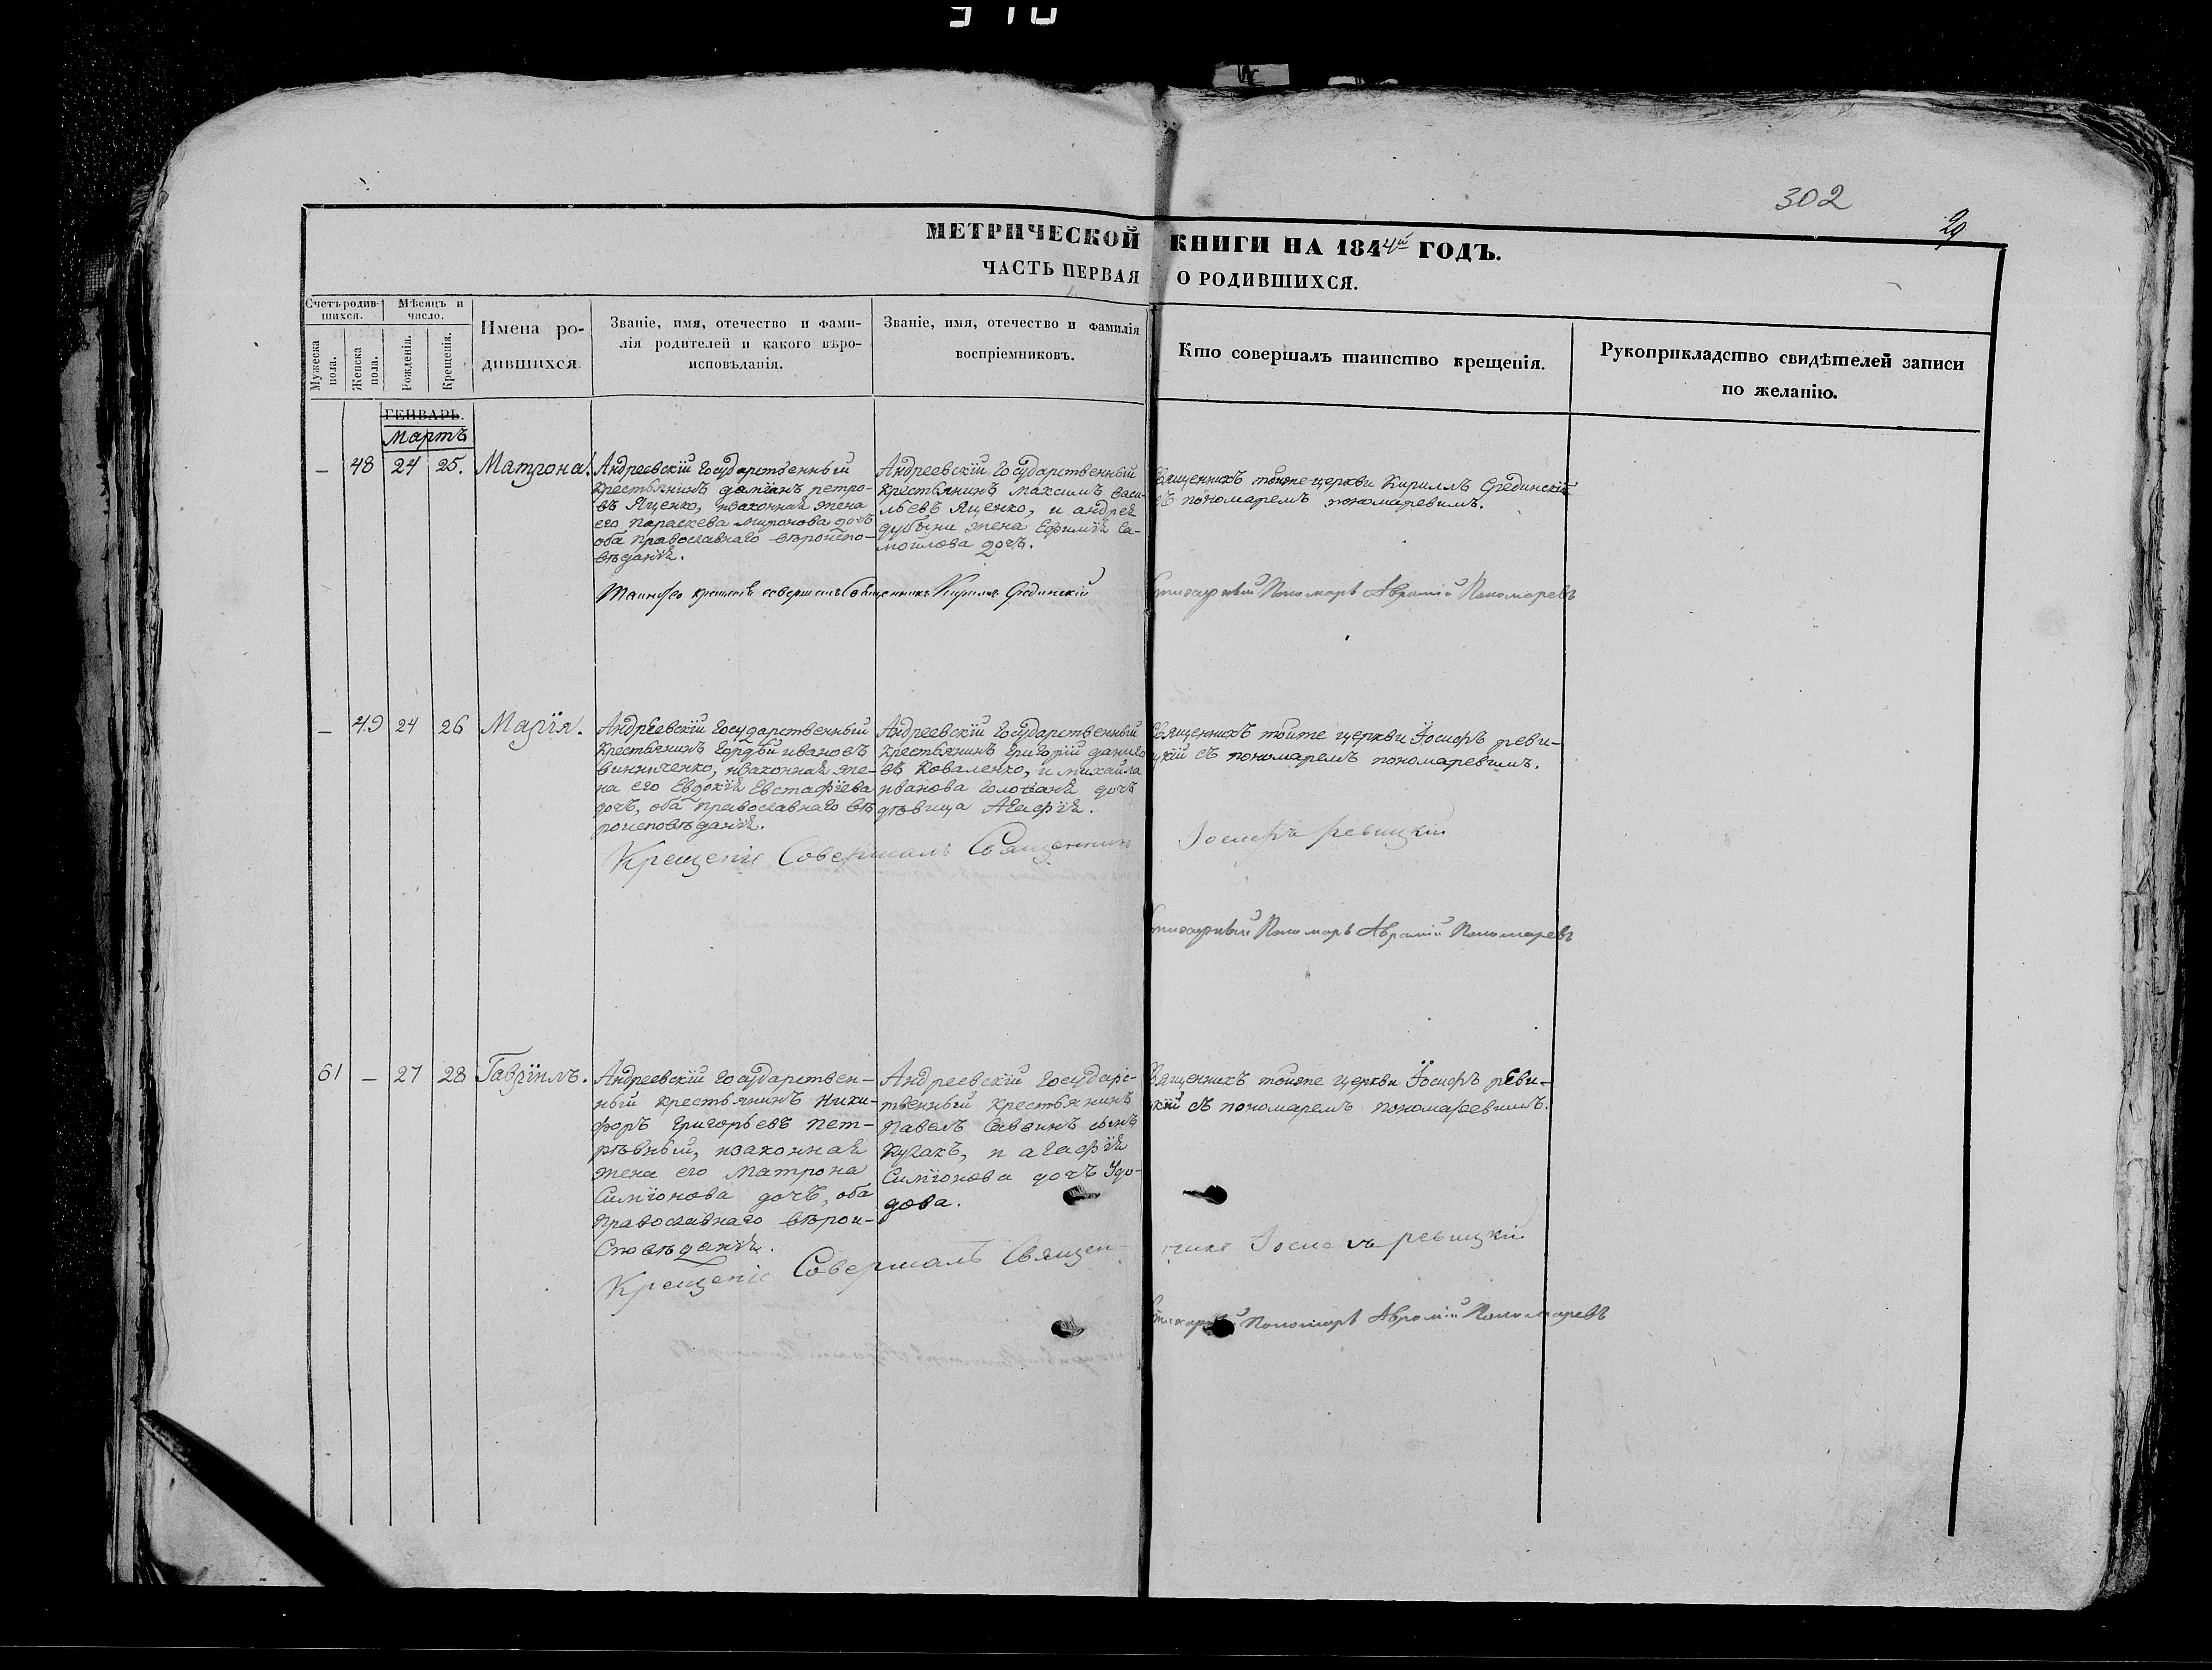 302
29
МЕТРИЧЕСКОЙ КНИГИ НА 1844й ГОДЪ.
ЧАСТЬ ПЕРВАЯ О РОДИВШИХСЯ.
Счетъ родив-
шихся.
Мужеска
пола.
Женска
пола.
Мѣсяцъ и
число.
Рожденія.
Крещенія.
Имена ро-
дившихся
Званіе, имя, отечество и фами-
лія родителей и какого вѣро-
исповѣданія.
Званіе, имя, отечество и фамилія
воспріемниковъ.
Кто совершалъ таинство крещенія.
Рукоприкладство свидѣтелей записи
по желанію.
ГЕНВАРЬ.
Мартъ
— 48 24 25. Матрона.
Андреевскій государственный
крестьянинъ даміанъ петро-
въ Яценко, изаконная жена
его параскева миронова дочь
оба православнаго вѣроиспо-
вѣданія.
Андреевскій государственный
крестьянинъ максимъ васи-
льевъ Яценко, и андрея
дубыни жена Ефимія са-
моилова дочь.
Священникъ тойже церкви Кириллъ Срединскій
съ пономаремъ пономаревымъ.
Таинство крещенія совершалъ Священникъ Кириллъ Срединскій
Стихарный Пономарь Аврамій Пономаревъ
— 49 24 26 Марія.
Андреевскій государственный
крестьянинъ гордѣй ивановъ
винниченко, изаконная же-
на его Евдокія Евстафіева
дочь, оба православнаго вѣ
роисповѣданія.
Андреевскій государственный
крестьянинъ григорій данило
въ коваленко, и михайла
иванова голованя дочь
дѣвица Агафія.
Священникъ тойже церкви Іосифъ реви-
цкій съ пономаремъ пономаревымъ.
Крещеніе Совершалъ Священникъ Іосифъ ревицкій
Стихарный Пономарь Аврамій Пономаревъ
61 — 27 28 Гавріилъ.
Андреевскій государствен-
ный крестьянинъ Ники-
форъ григорьевъ пет-
рѣвный, изаконная
жена его матрона
Симіонова дочь, оба
православнаго вѣрои-
сповѣданія.
Андреевскій государс-
твенный крестьянинъ
павелъ Саввинъ сынъ
кулакъ, и агафія
Симіонова дочь Удо-
дова.
Священникъ тойже церкви Іосифъ реви-
цкій съ пономаремъ пономаревымъ.
Крещеніе Совершалъ Священникъ Іосифъ ревицкій
Стихарный Пономарь Аврамій Пономаревъ